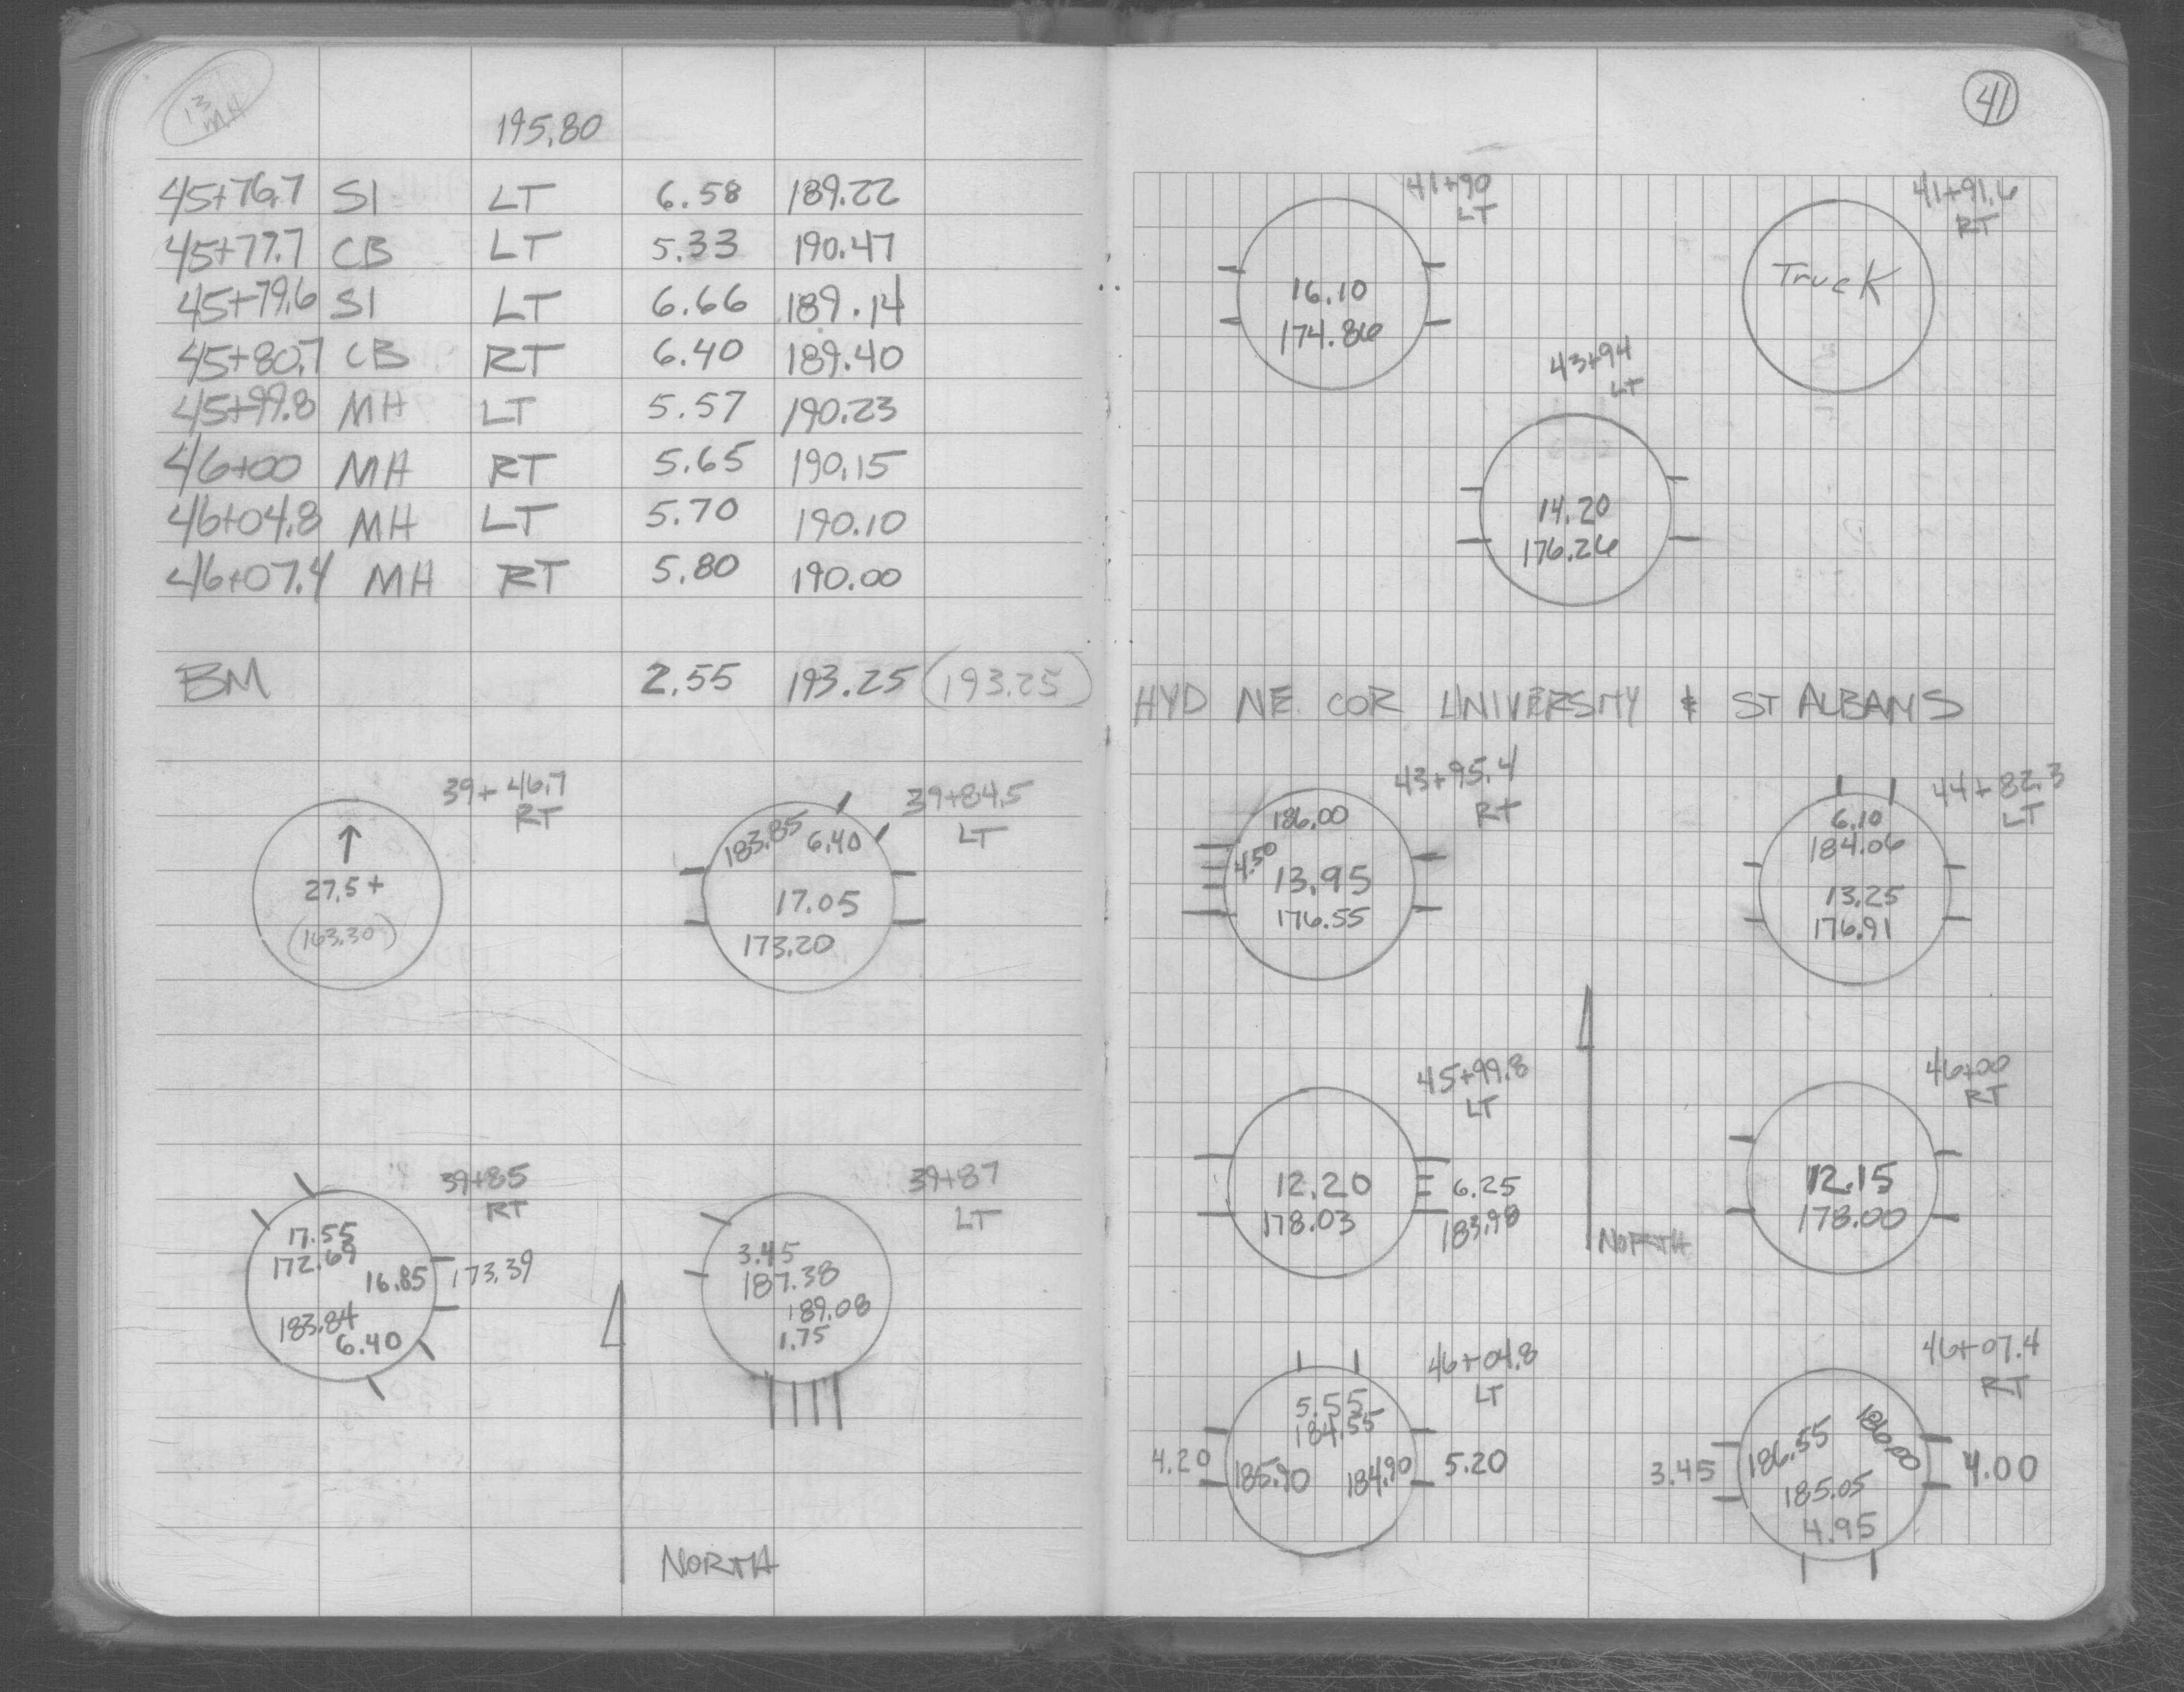 13
MH
195.80
45+76.7 SI LT 6.58 189.22
45+77.7 CB LT 5.33 190.47
45+79.6 SI LT 6.66 189.14
45+80.7 CB RT 6.40 189.40
45+99.8 MH LT 5.57 190.23
46+00 MH RT 5.65 190.15
46+04.8 MH LT 5.70 190.10
46+07.4 MH RT 5.80 190.00
BM 2.55 193.25 (193.25)
39+46.7
RT
↑
27.5+
(163.30)
39+84.5
LT
183.85 6.40
17.05
173.20
39+85
RT
17.55
172.69
16.85 173.39
183.84
6.40
39+87
LT
3.45
187.38
189.08
1.75
NORTH
41
41+90
LT
16.10
174.86
41+91.6
RT
Truck
43+94
LT
14.20
176.26
HYD NE. COR UNIVERSITY & ST ALBANS
43+95.4
RT
186.00
4.50
13.95
176.55
44+82.3
LT
6.10
184.06
13.25
176.91
45+99.8
LT
12.20 6.25
178.03 183.98
46+00
RT
12.15
178.00
NORTH
46+04.8
LT
5.55
184.55
4.20 185.90 184.90 5.20
46+07.4
RT
3.45 186.55 186.00 4.00
185.05
4.95